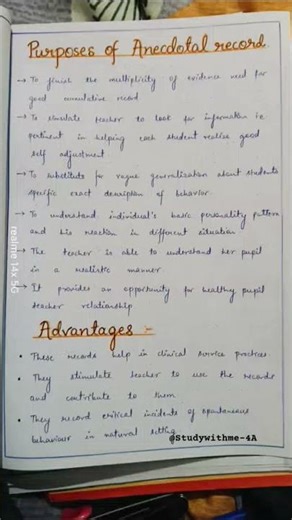 Purposes of Anecdotal record.
→ To finish the multiplicity of evidence need for
good cumulative record
→ To stimulate teacher to look for information i.e
pertinent in helping each student realise good
self adjustment
→ To substitute for vague generalisation about students
specific exact description of behavior.
→ To understand individual's basic personality pattern
and his reaction in different situation
→ The teacher is able to understand her pupil
in a realistic manner
→ It provides an opportunity for healthy pupil
teacher relationship
Advantages :-
• These records help in clinical service practices
• They stimulate teacher to use the records
and contribute to them
• They record critical incidents of spontaneous
behaviour in natural setting
@Studywithme-4A
realme 14x 5G